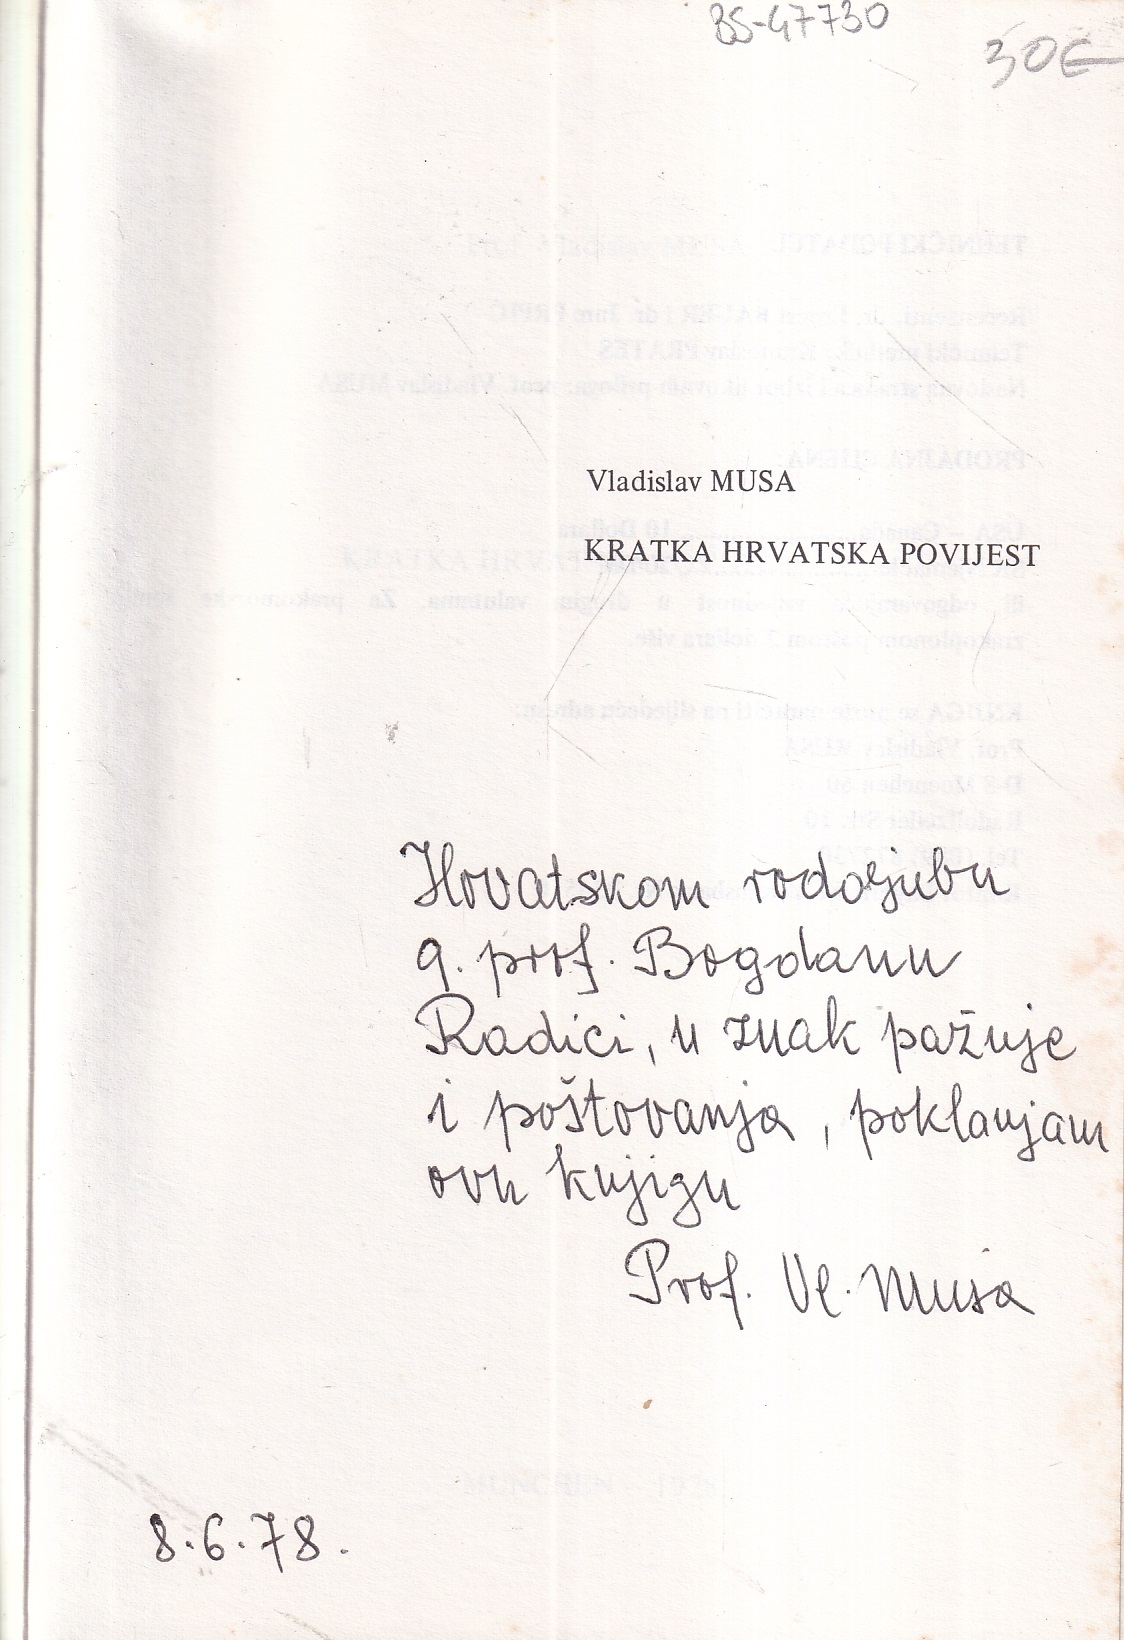 BS-47730
30€
Vladislav MUSA
KRATKA HRVATSKA POVIJEST
Hrvatskom rodoljubu
g. prof. Bogdanu
Radici, u znak pažnje
i poštovanja, poklanjam
ovu knjigu
Prof. Vl. Musa
8.6.78.